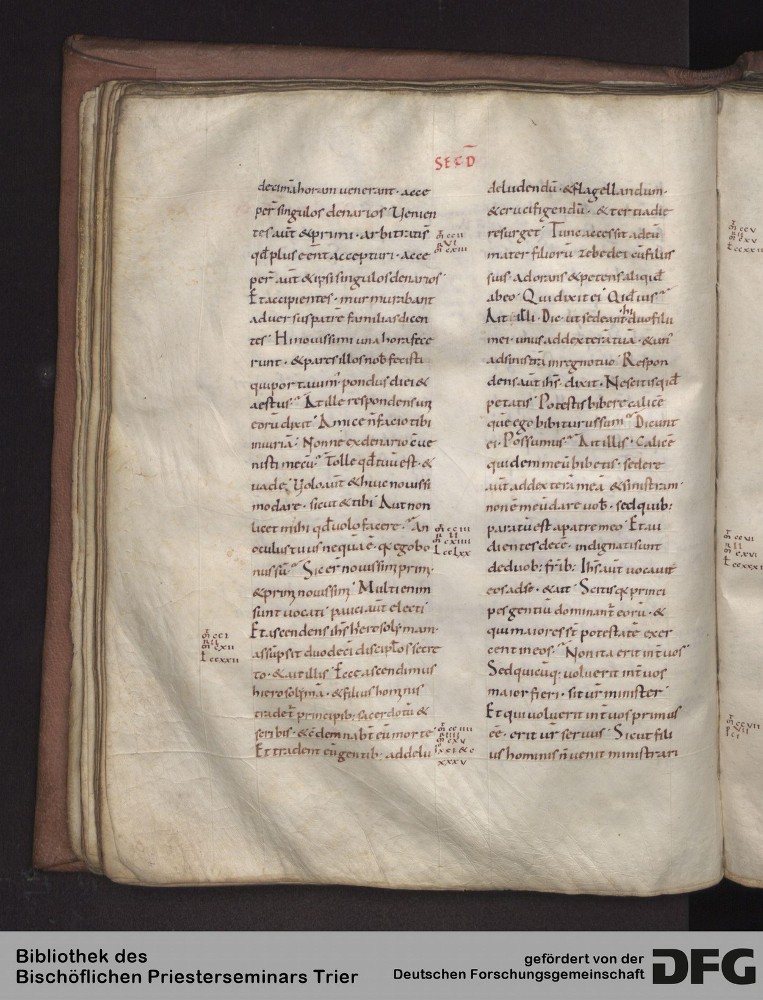 SECD̄
decimā horam venerant · acce
per̄ singulos denarios Venien
tes aūt & primi · arbitratis̄
qđ plus e᷑ent accepturi · acce
per̄ aūt & ipsi singulos denarios
Et accipientes · murmurabant
adversus patrē familias dicen
tes Hi novissimi una hora fece
runt · & pares illos nob̄ fecisti
qui portavim̄ pondus diei &
aestus At ille respondens uni
eorū dixit Amice n̄ facio tibi
iniuriā Nonne ex denario cōve
nisti mecū Tolle qđ tuū est · &
vade Volo aūt & huic novissi
mo dare · sicut & tibi Aut non
licet mihi qđ volo facere · An
oculus tuus nequā ē · q̨ ego bo
nus sū Sic er̄ novissimi prim̄
& prim̄ novissimi Multi enim
sunt vocati pauci aūt electi
Et ascendens ih̄s hierosolimam
assūpsit duodeci discip̄los secre
to · & ait illis Ecce ascendimus
hierosolimā · & filius hominis
tradet̄ principib: sacerdotū &
scribis · & cōdemnabt̄ eū morte
Et tradent eū gentib: ad delu
deludendū · & flagellandum ·
& crucifigendū · & tertia die
resurget Tunc accessit ad eū
mater filiorū zebedei cū filiis
suis adorans & petens aliquid
ab eo · Qui dixit ei Qid vis
Ait illi · Dic ut sedeant hi duo filii
mei · unus ad dexterā tuā · & un᾿
ad sinistrā in regno tuo Respon
dens aūt ih̄s · dixit · Nescitis qđ
petatis Potestis bibere calicē
quē ego bibiturus sum Dicunt
ei · Possumus Ait illis · Calicē
quidem meū bibetis · sedere
aūt ad dexterā meā & sinistram ·
non ē meū dare vob̄ · sed quib:
paratū est a patre meo Et au
dientes decē · indignati sunt
de duob: frīb: Ih̄s aūt vocavit
eos ad se · & ait Scitis q̨ princi
pes gentiū dominant̄ eorū · &
qui maiores s̄t potestatē exer
cent in eos · Non ita erit int̄ vos
Sed quicūq; voluerit int̄ vos
maior fieri · sit vr̄ minister
Et qui voluerit int̄ vos primus
eē · erit vr̄ servus Sicut fili
us hominis n̄ venit ministrari
Bibliothek des
Bischöflichen Priesterseminars Trier
gefördert von der
Deutschen Forschungsgemeinschaft
DFG